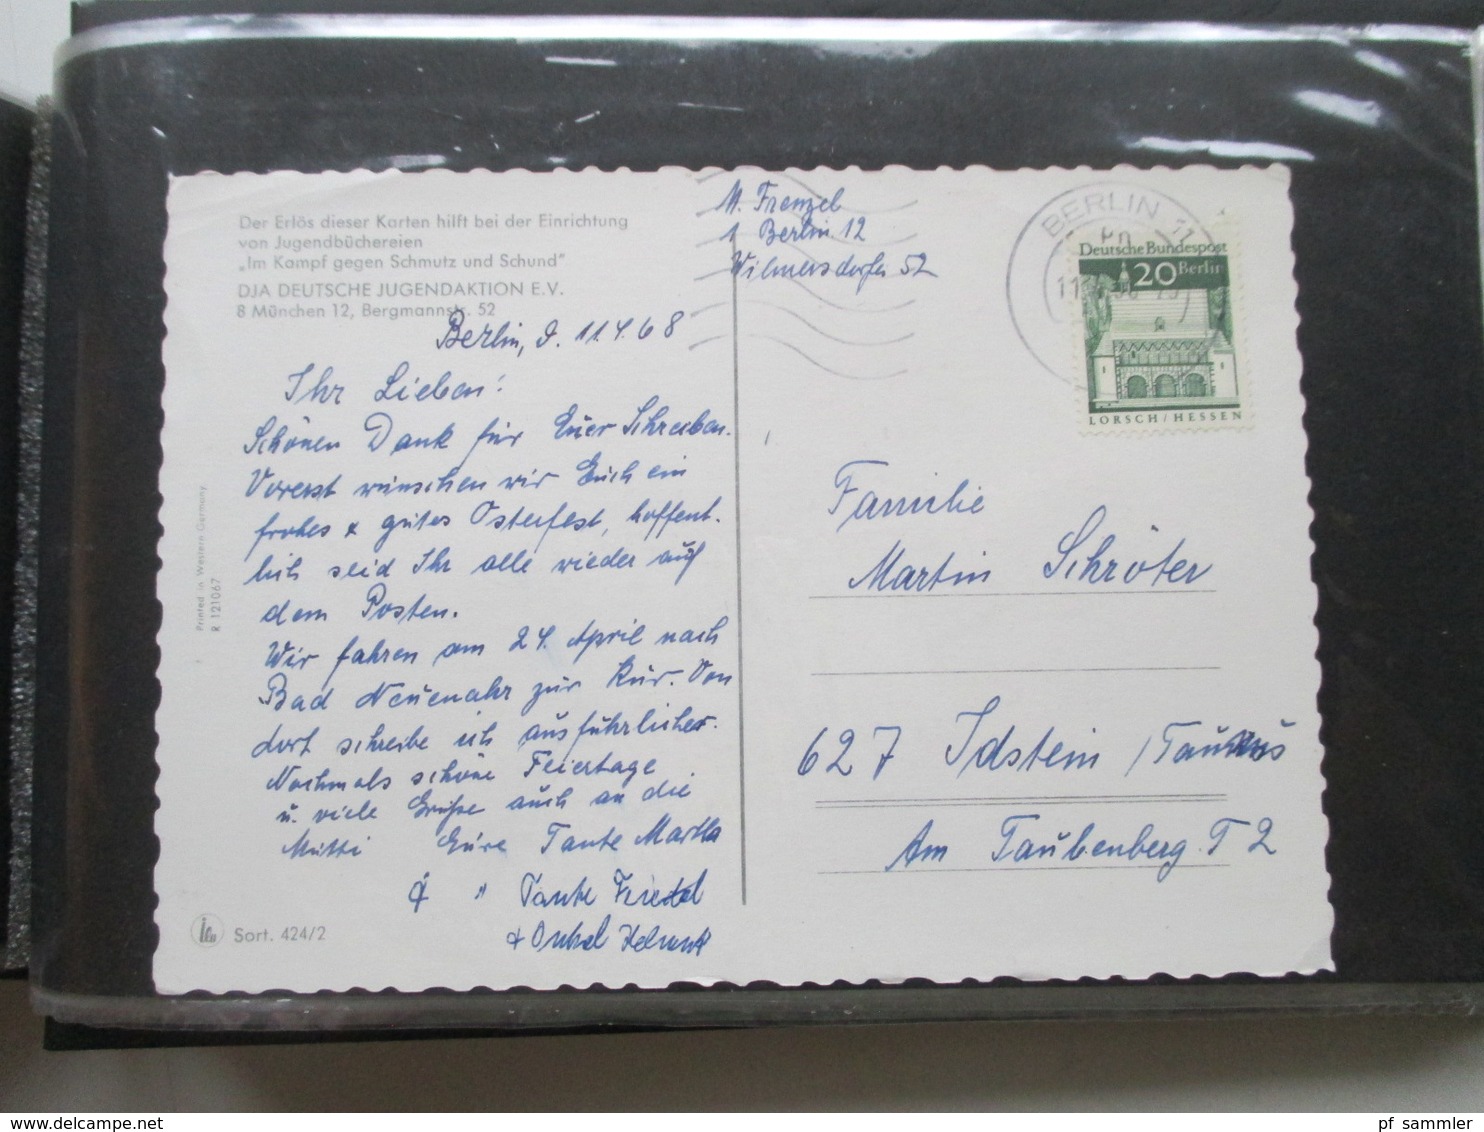 Der Erlös dieser Karten hilft bei der Einrichtung
von Jugendbüchereien
„Im Kampf gegen Schmutz und Schund"
DJA DEUTSCHE JUGENDAKTION E.V.
8 München 12, Bergmannstr. 52
Berlin, d. 11.4.68
Ihr Lieben!
Schönen Dank für Euer Schreiben.
Vorerst wünschen wir Euch ein
frohes & gutes Osterfest, hoffent-
lich seid Ihr alle wieder auf
dem Posten.
Wir fahren am 24. April nach
Bad Neuenahr zur Kur. Von
dort schreibe ich ausführlicher.
Nochmals schöne Feiertage
u. viele Grüße auch an die
Mutti Eure Tante Martha
& " Tante Friedel
+ Onkel Helmut
Printed in Western Germany
R 121067
Sort. 424/2
M. Frenzel
1 Berlin 12
Wilmersdorfer 52
BERLIN 11
Deutsche Bundespost
20 Berlin
LORSCH/HESSEN
Familie
Martin Schröter
627 Idstein /Taunus
Am Taubenberg T 2
pf_sammler